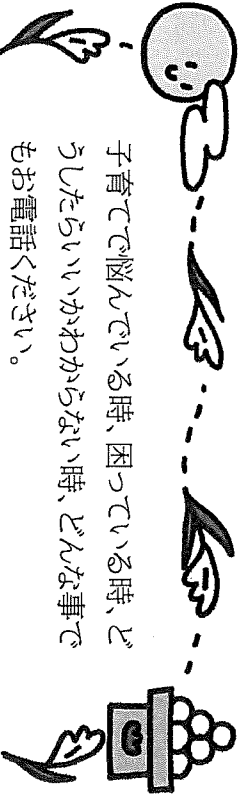 子育てで悩んでいる時、困っている時、ど
うしたらいいかわからない時、どんな事で
もお電話ください。